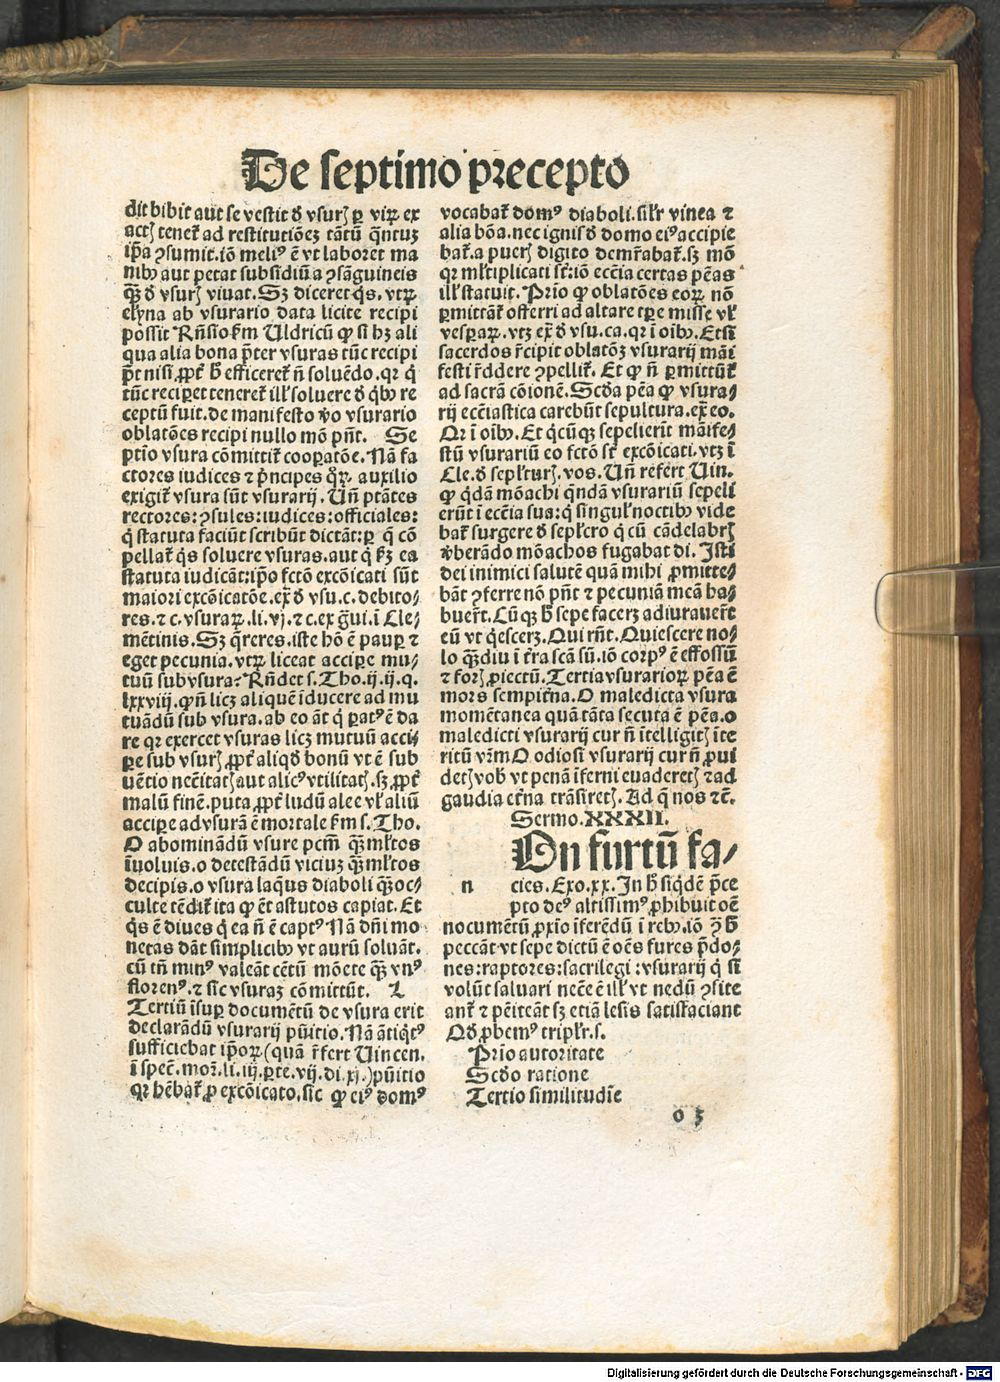 De septimo precepto
dit bibit aut se vestit đ vsurꝭ ꝑ virꝝ ex
actꝭ tenet᷑ ad restitutiōeꝫ tātū q̄ntuꝫ
ip̄a ↄsumit.iō meliꝰ ē vt laboret ma
nibꝰ aut petat subsidiū a ↄsāguineis
qꝫ̄ đ vsurꝭ viuat.Sꝫ diceret q̇s.vtꝝ
elyna ab vsurario data licite recipi
possit Rn̄sio ẜm Uldricū ꝙ si hꝫ ali
qua alia bona p̄ter vsuras tūc recipi
pn̄t nisi ꝓpt᷑ ħ efficeret᷑ n̄ soluēdo.qr q̇
tūc reciperet teneret᷑ illꝭ soluere đ q̇bꝰ re
ceptū fuit.de manifesto v̊o vsurario
oblatōes recipi nullo mō pn̄t. Se
ptīo vsura cōmittit᷑ cooꝑatōe.Nā fa
ctores iudices ⁊ p̄ncipes qrꝝ auxilio
exigit᷑ vsura sūt vsurarij.Un̄ ptātes
rectores:ↄsules:iudices:officiales:
q̇ statuta faciūt scribūt dictāt:ꝑ q̄ cō
pellat᷑ q̇s soluere vsuras.aut q̇ ẜꝫ ea
statuta iudicāt:ip̄o fctō excōicati sūt
maiori excōicatōe.ex̄ đ vsu.c.debito⸗
res.⁊ c.vsuraꝝ.li.vj.⁊ c.ex gͣui.ī Cle⸗
mētinis.Sꝫ q̄reres.iste hō ē pauꝑ ⁊
eget pecunia.vtꝝ liceat accipe mu⸗
tuū sub vsura:Rn̄det s.Tho.ij.ij.q.
lxxviij.ꝙ n̄ licꝫ aliquē īducere ad mu
tuādū sub vsura.ab eo āt q̇ ꝑatꝰ ē da
re qr exercet vsuras licꝫ mutuū acci⸗
pe sub vsurꝭ ꝓpt᷑ aliqđ bonū vt ē sub
uētio nc̄citatꝭ aut alicꝰ vtilitatꝭ.sꝫ ꝓpt᷑
malū finē.puta ꝓpt᷑ ludū alee vl̕ aliū
accipe ad vsurā ē mortale ẜm s.Tho.
O abominādū vsure pctm̄ qꝫ̄ ml̕tos
īuoluis.o detestādū viciuꝫ qꝫ̄ ml̕tos
decipis.o vsura laq̄us diaboli qꝫ̄ oc⸗
culte tēdit᷑ ita ꝙ ēt astutos capiat.Et
q̇s ē diues q̇ ea n̄ ē captꝰ Nā dn̄i mo
netas dāt simplicibꝰ vt aurū soluāt.
cū tn̄ minꝰ valeāt cētū mōete qꝫ̄ vnꝰ
florenꝰ.⁊ sic vsuraꝫ cōmittūt. L
Tertiū īsuꝑ documētū de vsura erit
declarādū vsurarij pūitio.Nā ātiq̇tꝰ
sufficiebat ip̄oꝝ (quā r̄fert Uincen.
ī spec̄.mor̄.li.iij.ꝑte.vij.di.xj.)pūitio
qr hēbat᷑ ꝓ excōicato.sic ꝙ eiꝰ domꝰ
vocabat᷑ domꝰ diaboli.silr̄ vinea ⁊
alia bōa.nec ignis đ domo eiꝰ accipie
bat᷑.a puerꝭ digito demr̄abat᷑.sꝫ mō
qr ml̕tiplicati st̄:iō ecc̄ia certas pēas
illꝭ statuit.Prīo ꝙ oblatōes eoꝝ nō
ꝑmittāt᷑ offerri ad altare tꝑe misse vl̕
vesꝑaꝝ.vtꝫ ex̄ đ vsu.ca.qr ī oībꝰ.Et si
sacerdos r̄cipit oblatōꝫ vsurarij māi
festi r̄ddere ↄpellit᷑.Et ꝙ n̄ ꝑmittūt᷑
ad sacrā cōionē.Scđa pēa ꝙ vsura⸗
rij ecc̄iastica carebūt sepultura.ex̄ eo.
Qr ī oībꝰ.Et q̇cūqꝫ sepelierīt māife⸗
stū vsurariū eo fctō st̄ excōicati.vtꝫ ī
Cle.đ sepl̕turꝭ.vos.Un̄ refert Uin.
ꝙ q̇dā mōachi q̄ndā vsurariū sepeli
erūt ī ecc̄ia sua:q̇ singul̕ noctibꝰ vide
bat᷑ surgere đ sepl̕cro q̇ cū cādelabrꝭ
v̓berādo mōachos fugabat di.Isti
dei inimici salutē quā mihi ꝓmitte⸗
bāt ↄferre nō pn̄t ⁊ pecuniā meā ha⸗
buer̄t.Cūqꝫ ħ sepe facerꝫ adiurauer̄t
eū vt q̇escerꝫ.Qui rn̄t.Quiescere no⸗
lo qꝫ̄diu ī t̄ra scā sū.iō corpꝰ ē effossū
⁊ forꝭ ꝓiectū.Tertia vsurarioꝝ pēa ē
mors sempit̄na.O maledicta vsura
momētanea quā tāta secuta ē pēa.o
maledicti vsurarij cur n̄ ītelligitꝭ īte
ritū vr̄m O odiosi vsurarij cur n̄ ꝓui
detꝭ vobꝭ vt penā īferni euaderetꝭ ⁊ ad
gaudia et̄na trāsiretꝭ.Ad q̄ nos ⁊c̄.
Sermo.XXXII.
On furtū fa⸗
n cies.Exo.xx.In ħ siq̇dē p̄ce
pto deꝰ altissimꝰ ꝓhibuit oē
nocumētū ꝓxīo īferēdū ī rebꝰ.iō ↄͣ ħ
peccāt vt sepe dictū ē oēs fures p̄do⸗
nes:raptores:sacrilegi:vsurarij q̇ si
volūt saluari nēc̄e ē illꝭ vt nedū ↄsite
ant᷑ ⁊ pēiteāt sꝫ etiā lesis satisfaciant
Qđ ꝓbemꝰ tripl̕r.s.
Prīo autoritate
Scđo ratione
Tertio similitudīe
o 5
Digitalisierung gefördert durch die Deutsche Forschungsgemeinschaft - DFG